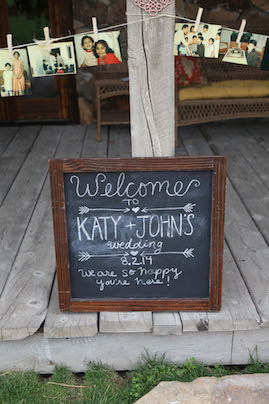 Welcome
TO
KATY + JOHN'S
wedding
8.2.14
we are so happy
you're here!